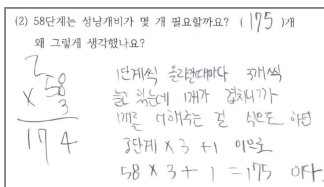 (2) 58단계는 성냥개비가 몇 개 필요할까요? ( 175 )개
왜 그렇게 생각했나요?
2
58
× 3
174
1단계씩 올라갈때마다 3개씩
늘고 있는데 1개가 겹치니까
1개를 더해주는 걸 식으로 하면
3단계 × 3 + 1 이므로
58 × 3 + 1 = 175 이다.